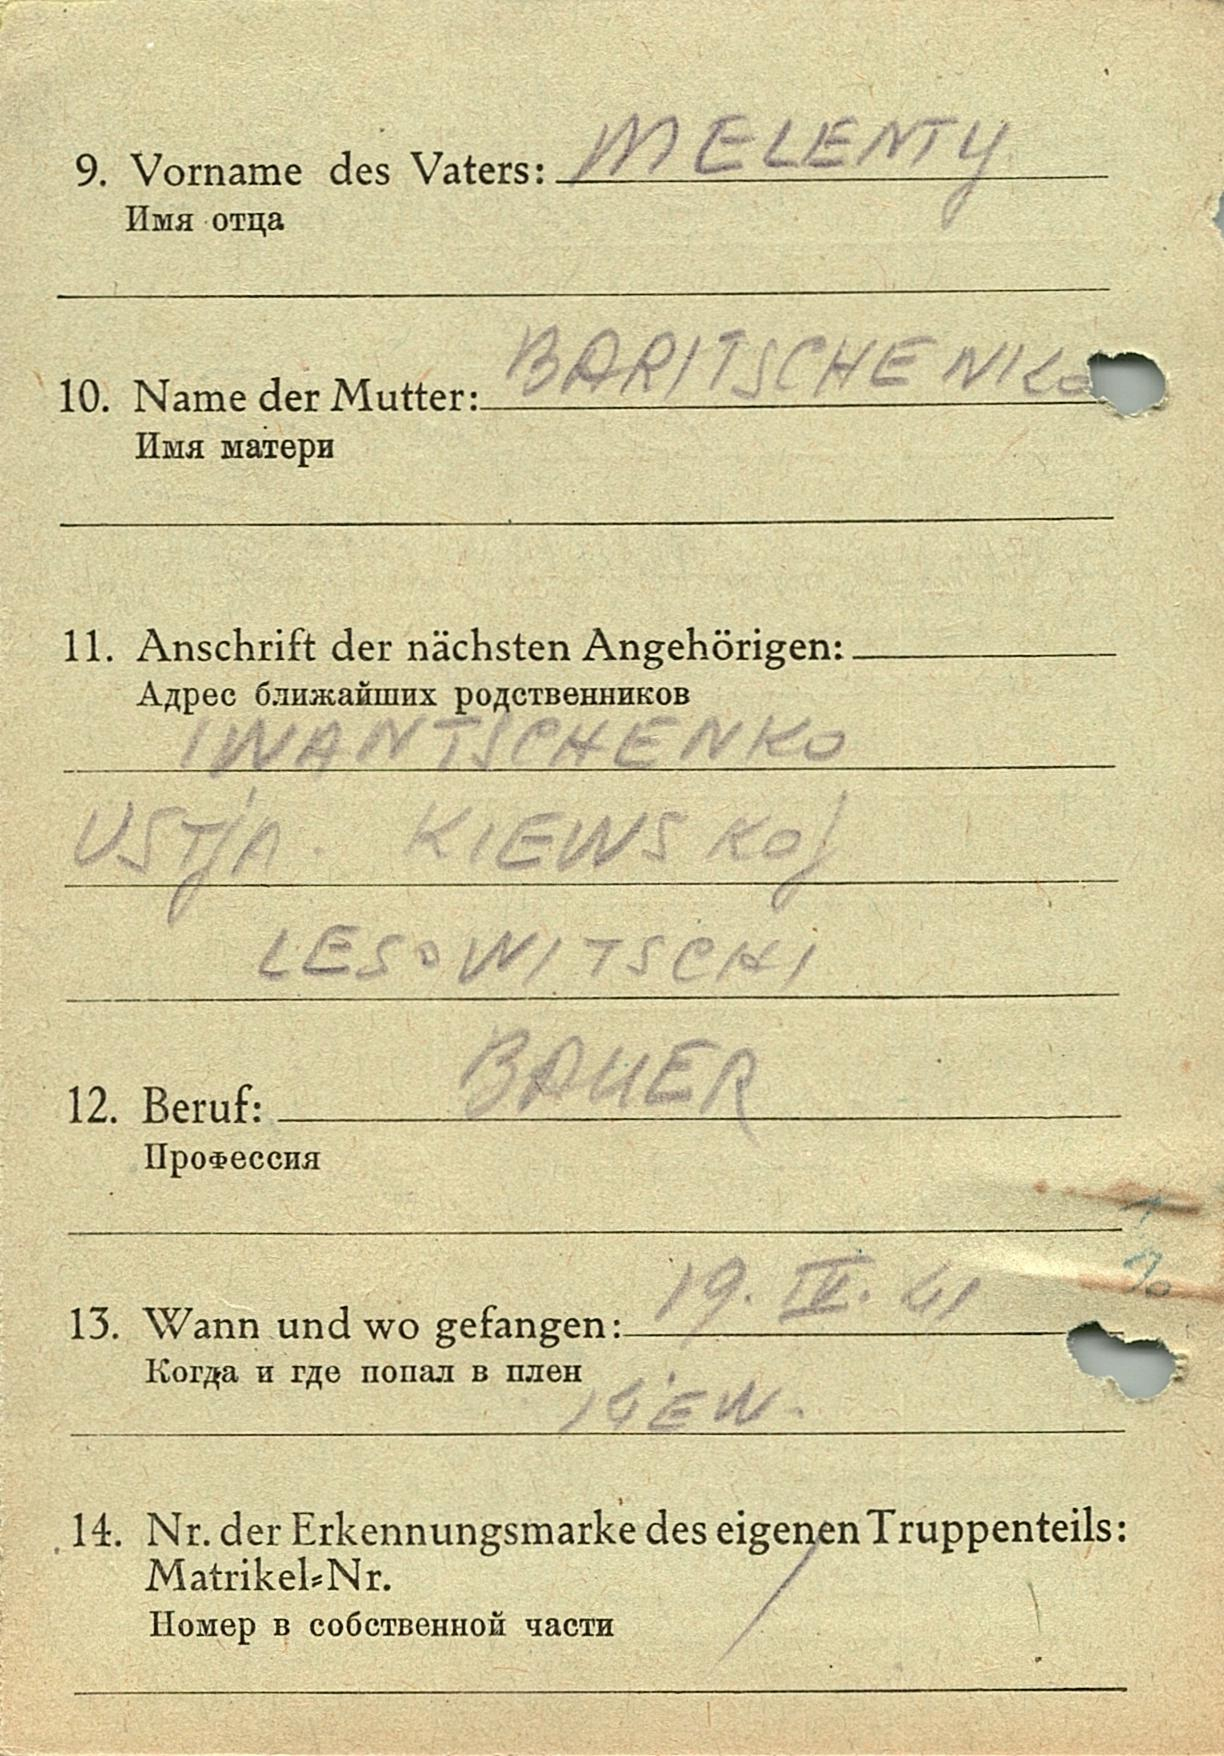 9. Vorname des Vaters: MELENTY
Имя отца
10. Name der Mutter: BARITSCHENKO
Имя матери
11. Anschrift der nächsten Angehörigen:
Адрес ближайших родственников
IWANTSCHENKO
USTJA. KIEWSKOJ
LESOWITSCHI
12. Beruf: BAUER
Профессия
13. Wann und wo gefangen: 19. IX. 41
Когда и где попал в плен
KIEW.
14. Nr. der Erkennungsmarke des eigenen Truppenteils:
Matrikel-Nr.
Номер в собственной части